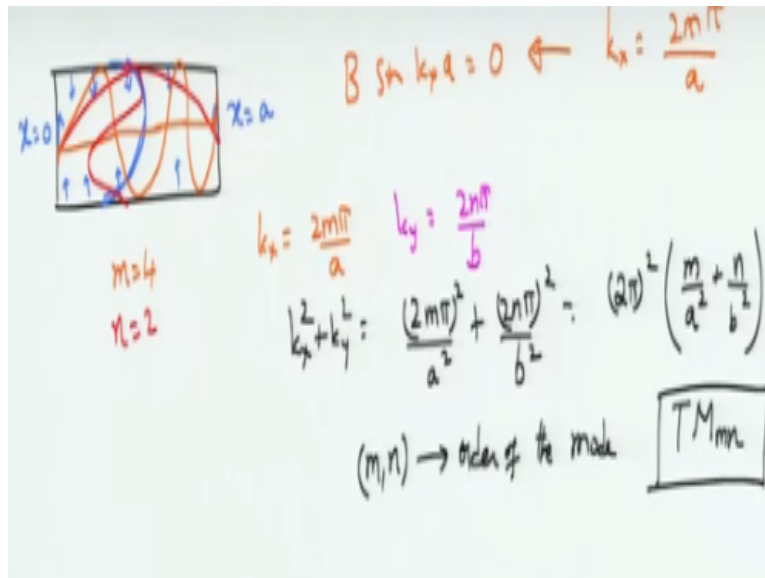 B sin kₓ a = 0 ← kₓ = 2mπ/a
x=0
x=a
kₓ = 2mπ/a  k_y = 2nπ/b
m=4
n=2
kₓ² + k_y² = (2mπ)²/a² + (2nπ)²/b² = (2π)² (m/a² + n/b²)
(m,n) → order of the mode
TMₘₙ